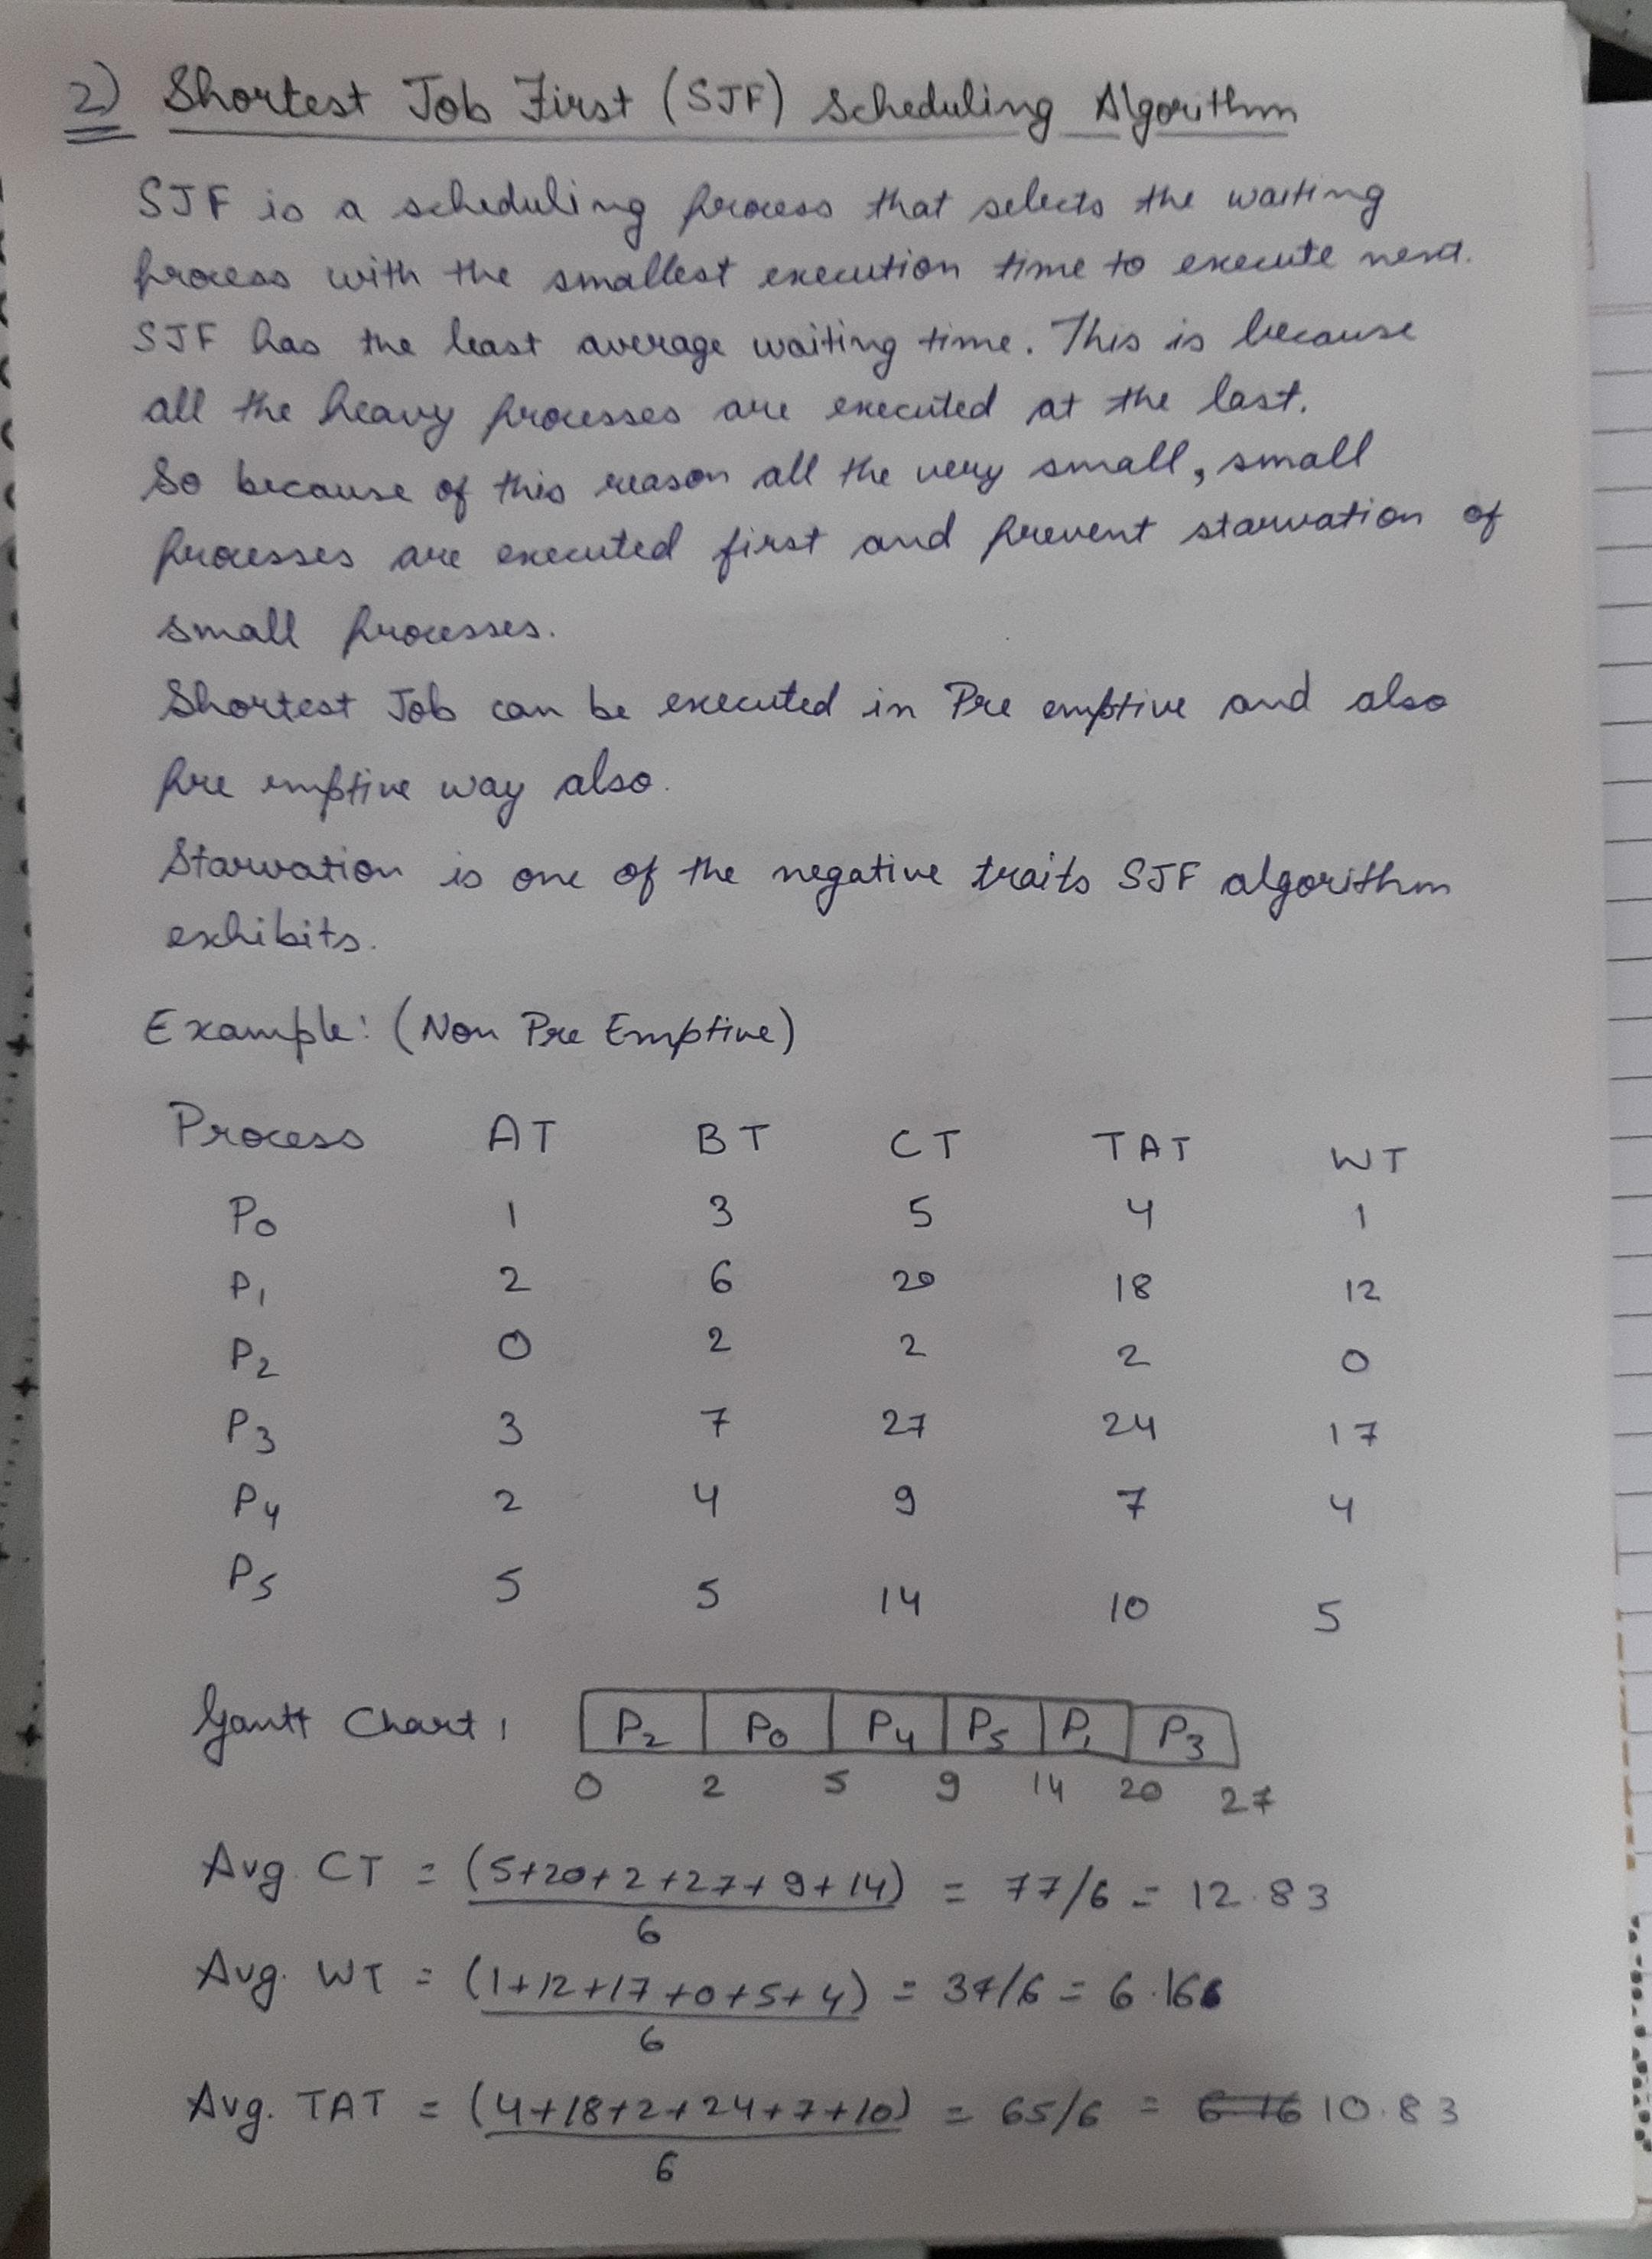 2) Shortest Job First (SJF) Scheduling Algorithm
SJF is a scheduling process that selects the waiting
process with the smallest execution time to execute next.
SJF has the least average waiting time. This is because
all the heavy processes are executed at the last.
So because of this reason all the very small, small
processes are executed first and prevent starvation of
small processes.
Shortest Job can be executed in Pre emptive and also
pre emptive way also.
Starvation is one of the negative traits SJF algorithm
exhibits.
Example: (Non Pre Emptive)
Process AT BT CT TAT WT
P0 1 3 5 4 1
P1 2 6 20 18 12
P2 0 2 2 2 0
P3 3 7 27 24 17
P4 2 4 9 7 4
P5 5 5 14 10 5
Gantt Chart: P2 P0 P4 P5 P1 P3
0 2 5 9 14 20 27
Avg. CT = (5+20+2+27+9+14) = 77/6 = 12.83
6
Avg. WT = (1+12+17+0+5+4) = 37/6 = 6.166
6
Avg. TAT = (4+18+2+24+7+10) = 65/6 = 6.16 10.83
6